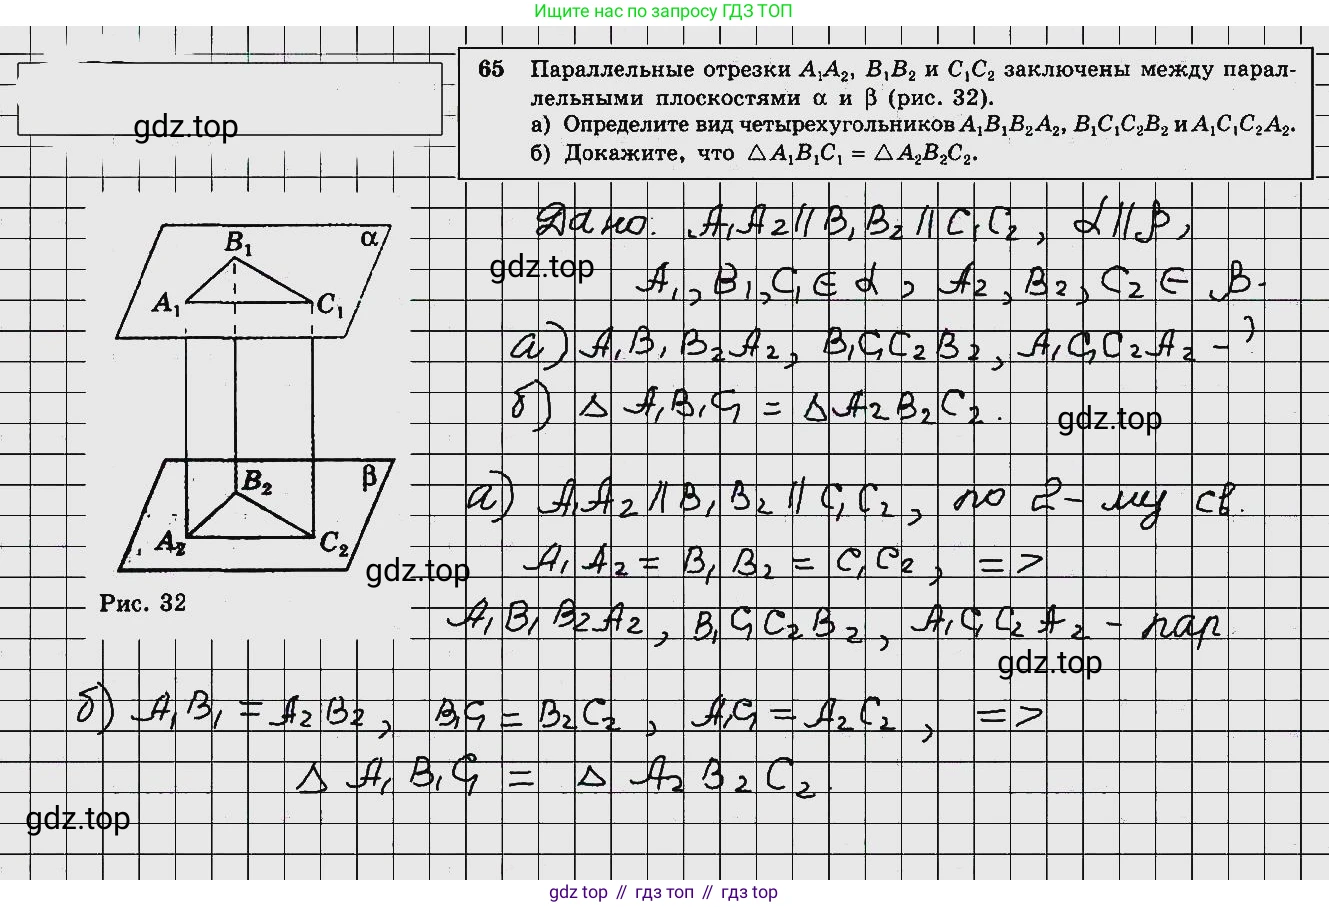 Ищите нас по запросу ГДЗ ТОП
gdz.top
65 Параллельные отрезки A₁A₂, B₁B₂ и C₁C₂ заключены между парал-
лельными плоскостями α и β (рис. 32).
а) Определите вид четырехугольников A₁B₁B₂A₂, B₁C₁C₂B₂ и A₁C₁C₂A₂.
б) Докажите, что △A₁B₁C₁ = △A₂B₂C₂.
B₁ α
A₁ C₁
B₂ β
A₂ C₂
Рис. 32
Дано: A₁A₂ || B₁B₂ || C₁C₂, α || β,
gdz.top
A₁, B₁, C₁ ∈ α, A₂, B₂, C₂ ∈ β.
а) A₁B₁B₂A₂, B₁C₁C₂B₂, A₁C₁C₂A₂ - ?
б) △ A₁B₁C₁ = △ A₂B₂C₂.
gdz.top
а) A₁A₂ || B₁B₂ || C₁C₂, по 2-му св.
A₁A₂ = B₁B₂ = C₁C₂, =>
gdz.top
A₁B₁B₂A₂, B₁C₁C₂B₂, A₁C₁C₂A₂ - пар
gdz.top
б) A₁B₁ = A₂B₂, B₁C₁ = B₂C₂, A₁C₁ = A₂C₂, =>
△ A₁B₁C₁ = △ A₂B₂C₂.
gdz.top
gdz top // гдз топ // гдз top